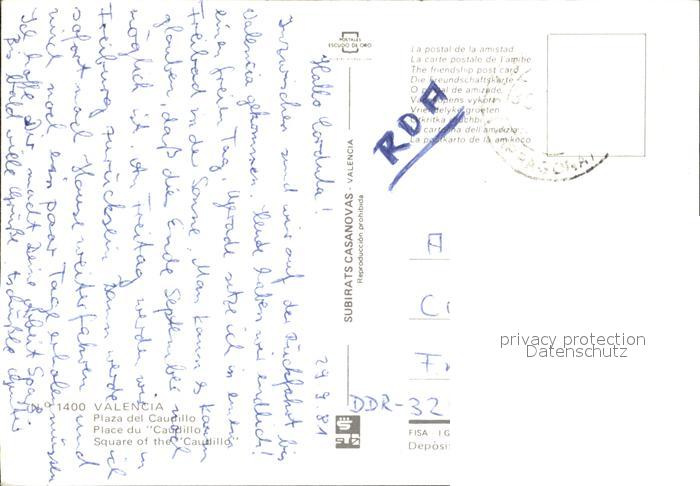 29.9.81
Hallo Cordula!
Inzwischen sind wir auf der Rückfahrt bis
Valencia gekommen. Heute haben wir endlich
einen freien Tag. Gerade sitze ich in einem
Freibad in der Sonne. Man kann es kaum
glauben, daß dies Ende September noch
möglich ist. Am Freitag werden wir in
Freiburg zurück sein. Dann werde ich
sofort nach Hause weiterfahren und
mich noch ein paar Tage erholen müssen.
Ich hoffe Dir macht Deine Arbeit Spaß.
Bis bald viele Grüße tschüßle
N.º 1400 VALENCIA
Plaza del Caudillo
Place du "Caudillo"
Square of the "Caudillo"
POSTALES
ESCUDO DE ORO
SUBIRATS CASANOVAS - VALENCIA
Reproducción prohibida
La postal de la amistad
La carte postale de l'amitié
The friendship post card
Die Freundschaftskarte
O postal de amizade
Vriendelijke groeten
La cartolina dell'amicizia
La postkarto de la amikeco
RDA
A
C
F
DDR-32
FISA I G
Depósi
privacy protection
Datenschutz